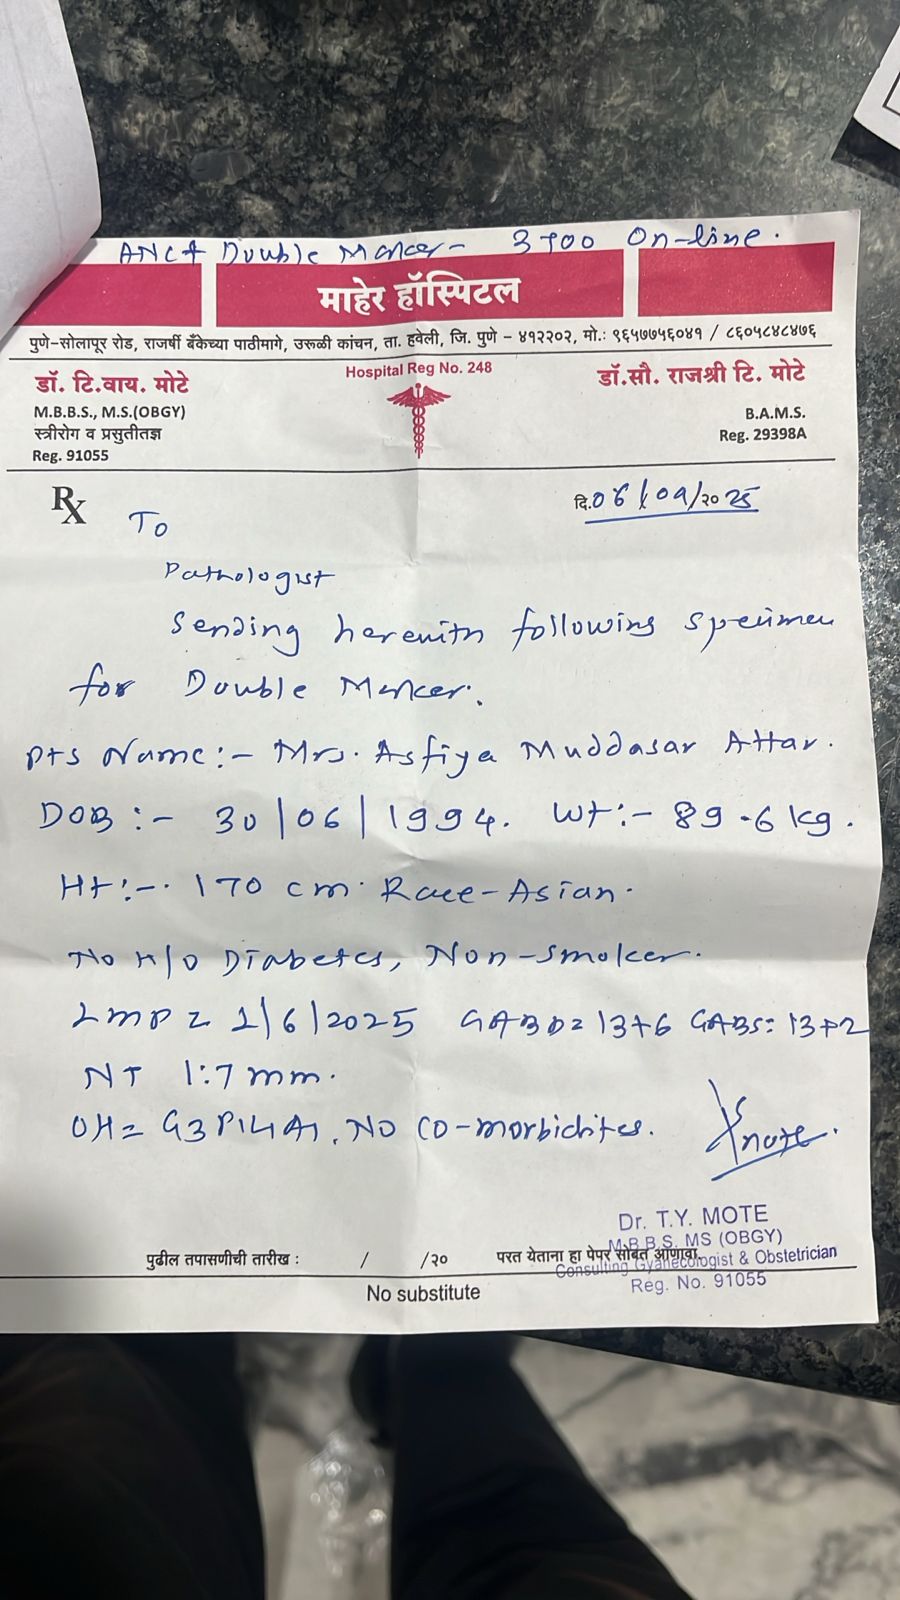 ANC + Double Marker - 3700 On-line.
माहेर हॉस्पिटल
पुणे-सोलापूर रोड, राजर्षी बँकेच्या पाठीमागे, उरूळी कांचन, ता. हवेली, जि. पुणे - ४१२२०२, मो.: ९६५७७५६०४१ / ८६०५८४८४७६
Hospital Reg No. 248
डॉ. टि.वाय. मोटे
M.B.B.S., M.S.(OBGY)
स्त्रीरोग व प्रसुतीतज्ञ
Reg. 91055
डॉ.सौ. राजश्री टि. मोटे
B.A.M.S.
Reg. 29398A
Rx
दि.06/09/२०25
To
Pathologist
Sending herewith following specimen
for Double Marker.
Pts Name:- Mrs. Asfiya Muddasar Attar.
DOB :- 30/06/1994. Wt:- 89.6 kg.
Ht:-. 170 cm. Race-Asian.
No H/O Diabetes, Non-smoker.
LMP = 1/6/2025 GABD= 13+6 GABS= 13+2
NT 1.7 mm.
OH= G3P1L1A1. No co-morbidites.
Dr. T.Y. MOTE
M.B.B.S. MS (OBGY)
Consulting Gyanecologist & Obstetrician
Reg. No. 91055
पुढील तपासणीची तारीख : / /२०
परत येताना हा पेपर सोबत आणावा.
No substitute